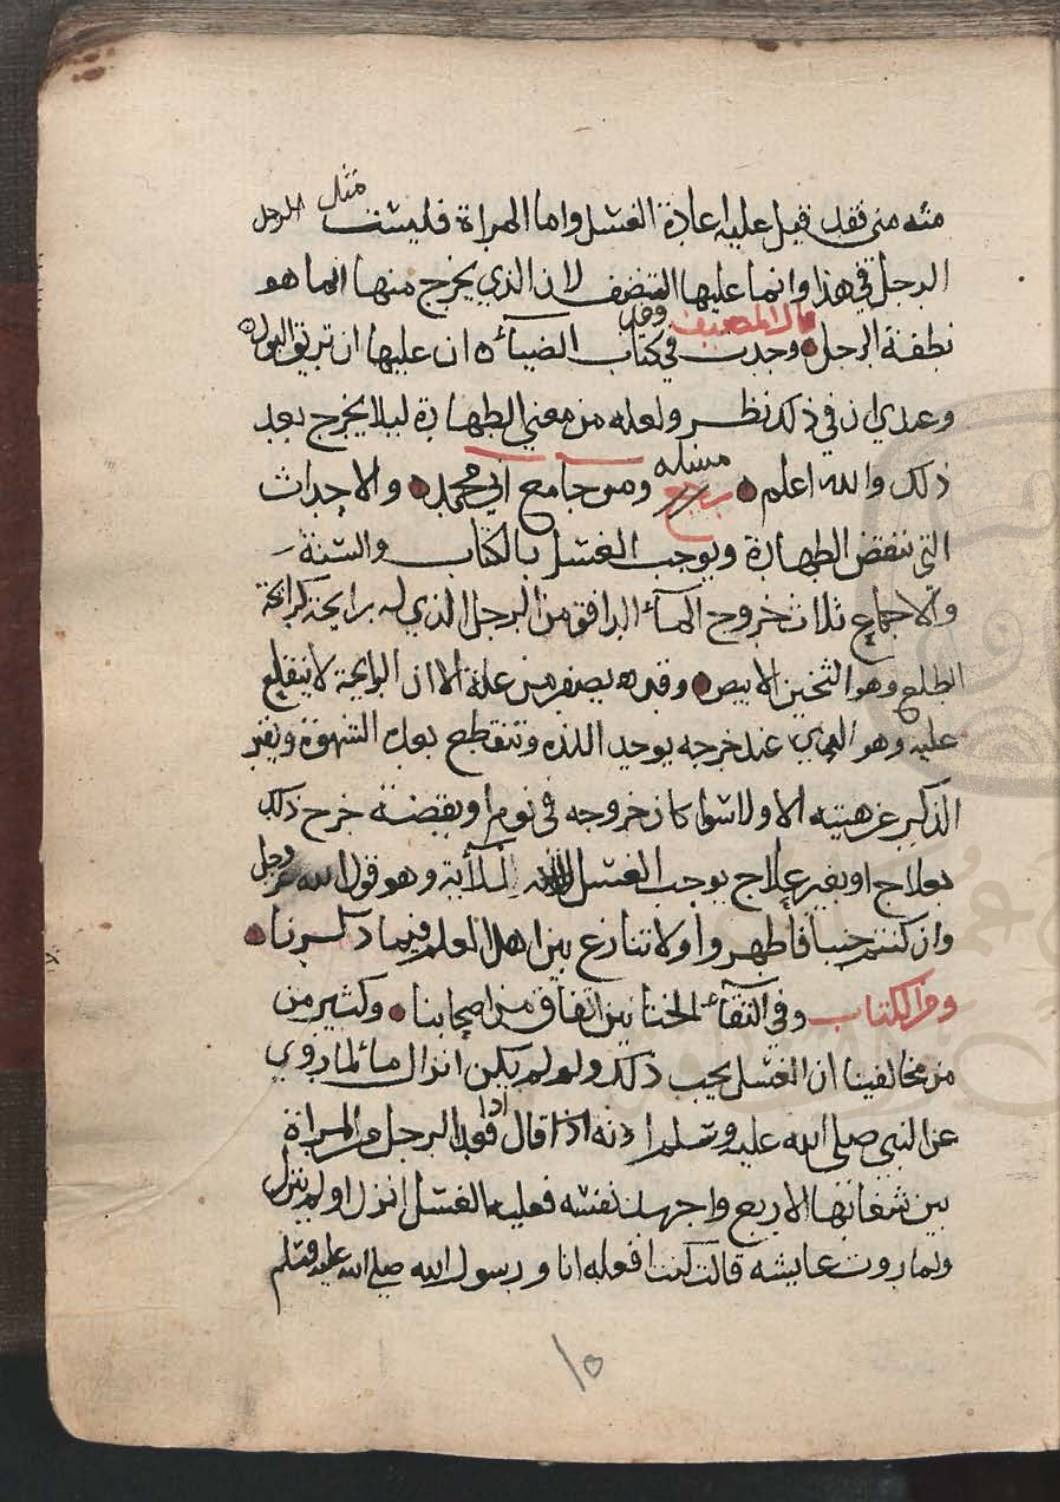 منه مني فقد قيل عليه اعادة الغسل واما المراة فليست مثل الرجل
الرجل في هذا وانما عليها التنضف لان الذي يخرج منها انما هو
نطفة الرجل قال المصنف وقد وجدت في كتاب الضيآء ان عليها ان تريق البول
وعندي ان في ذلك نظر ولعله من معني الطهارة ليلا يخرج بعد
ذلك والله اعلم مسئله رجع ومن جامع ابي محمد والاحداث
التي تنقض الطهارة ويوجب الغسل بالكتاب والسنة
والاجماع ثلاث خروج المآء الدافق من الرجل الذي له رايحة كرايحة
الطلع وهو الثخين الابيض وقد يصفر من علة الا ان الرايحة لا تنقلع
عليه وهو الذي عند خرجه يوجد اللذه وتنقطع بعده الشهوة ويغير
الذكر عن هيته الاولا سوا كان خروجه في نوم او يقضة خرج ذلك
بعلاج او بغير علاج يوجب الغسل للآية وهو قول الله عز وجل
وان كنتم جنبا فاطهروا ولا تنازع بين اهل العلم فيما ذكرنا
ومن الكتاب وفي التقآء الختانين اتفاق من اصحابنا وكثير من
من مخالفينا ان الغسل يجب ذلك ولو لم يكن انزال مائلما روي
عن النبي صلى الله عليه وسلم انه اذا قال اذا قعد الرجل من المراة
بين شفانها الاربع واجهد نفسه فعليه الغسل انزل او لم ينزل
ولما روت عايشه قالت كنت افعله انا ورسول الله صلى الله عليه وسلم
١٥